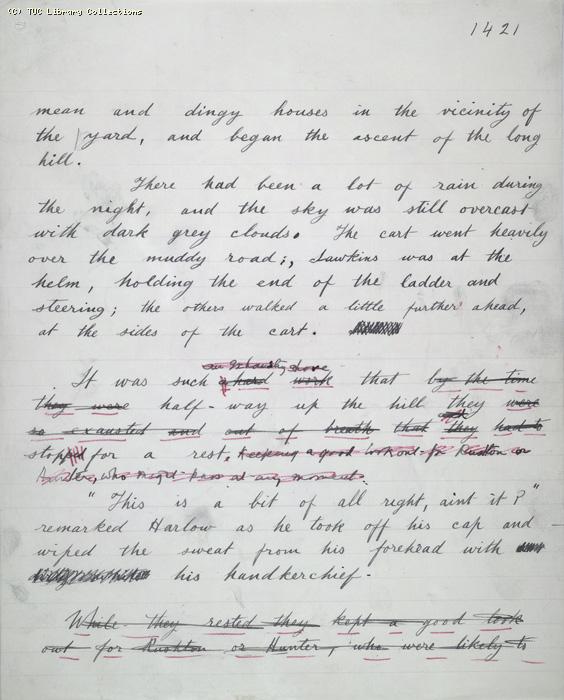 (C) TUC Library Collections
1421
mean and dingy houses in the vicinity of
the yard, and began the ascent of the long
hill.
There had been a lot of rain during
the night, and the sky was still overcast
with dark grey clouds. The cart went heavily
over the muddy road; Sawkins was at the
helm, holding the end of the ladder and
steering; the others walked a little further ahead,
at the sides of the cart.
an exhausting shove,
It was such a hard work that by the time
they were half-way up the hill they were
so exausted and out of breath that they had to
stop for a rest. Keeping a good lookout for Rushton or
Hunter, who might pass at any moment.
"This is a bit of all right, aint it?"
remarked Harlow as he took off his cap and
wiped the sweat from his forehead with
his handkerchief.
While they rested they kept a good look
out for Rushton or Hunter, who were likely to